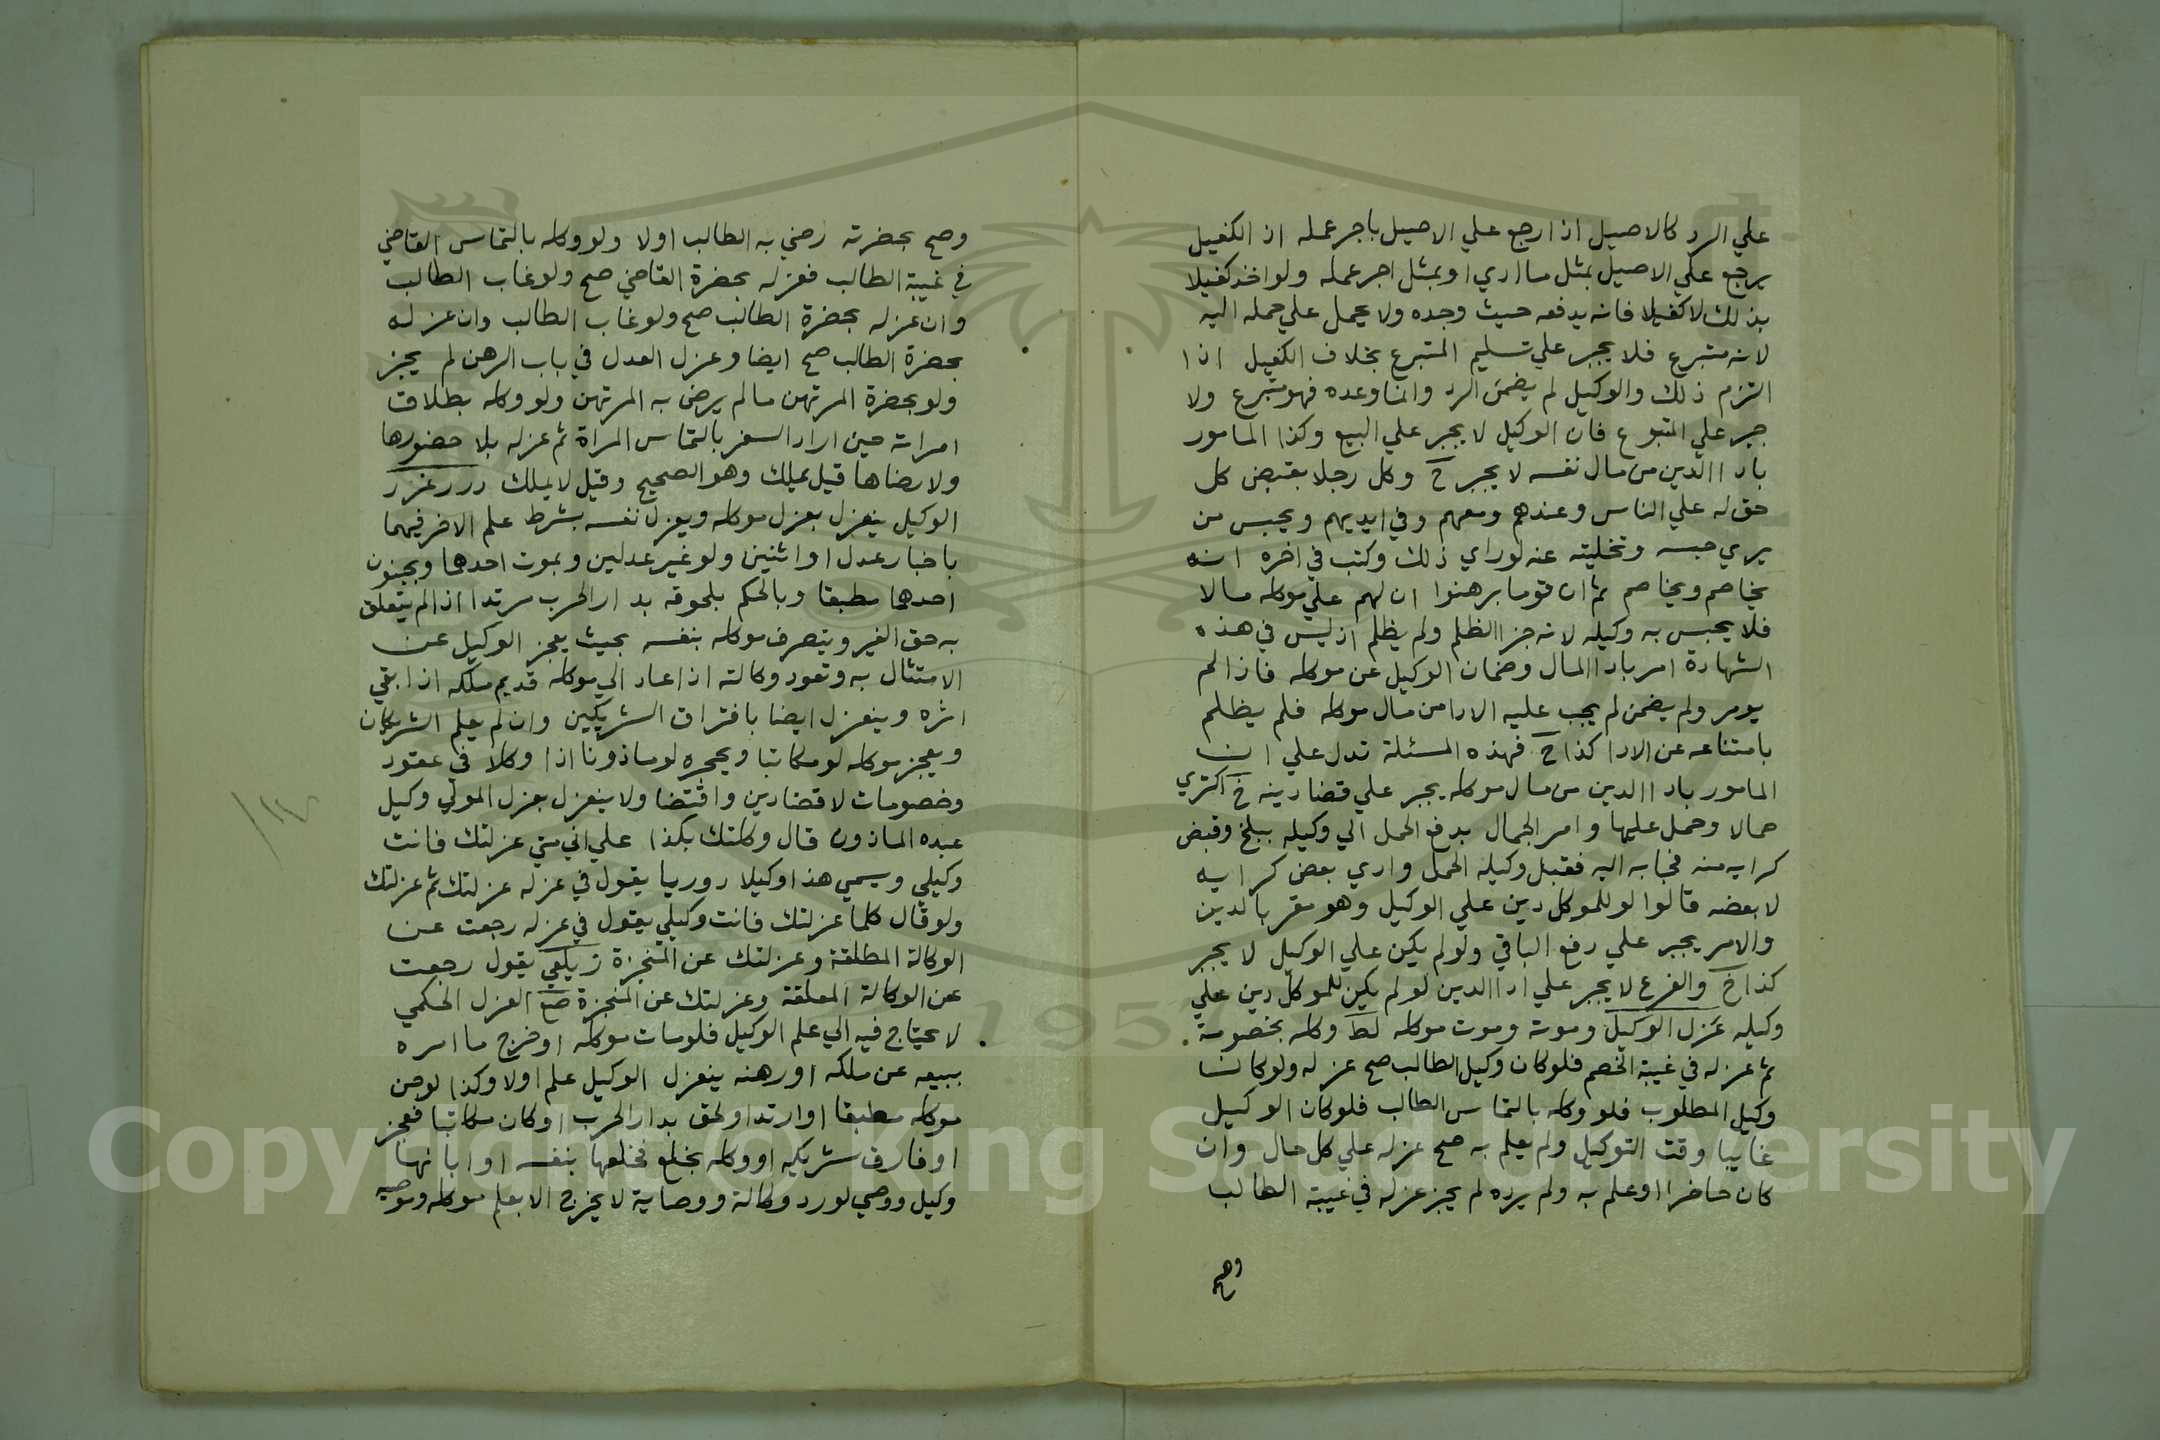 علي الرد كالاصيل اذ ارجع علي الاصيل باجر عمله اذ الكفيل
يرجع علي الاصيل بمثل ما ادي او بمثل اجر عمله ولو اخذ كفيلا
بذلك لا كفيلا فانه يدفعه حيث وجده ولا يحمل علي حمله اليه
لانه متبرع فلا يجبر علي تسليم المتبرع بخلاف الكفيل اذا
التزم ذلك والوكيل لم يضمن الرد وانما وعده فهو متبرع ولا
جبر علي المتبوع فان الوكيل لا يجبر علي البيع وكذا المامور
باداالدين من مال نفسه لا يجبر خ وكل رجلا بقبض كل
حق له علي الناس وعندهم ومعهم وفي ايديهم ويحبس من
يري حبسه وتخليته عنه لو راي ذلك وكتب في اخره انه
يخاصم ويخاصم ثم ان قوما برهنوا ان لهم علي موكله مالا
فلا يحبس به وكيله لانه جزاالظلم ولم يظلم اذ ليس في هذه
الشهادة امر باداالمال وضمان الوكيل عن موكله فاذا لم
يومر ولم يضمن لم يجب عليه الادا من مال موكله فلم يظلم
بامتناعه عن الادا كذا خ فهذه المسئلة تدل علي ان
المامور باداالدين من مال موكله يجبر علي قضا دينه خ اكتري
حمالا وحمل عليها وامر الجمال بدفع الحمل الي وكيله ببلخ وقبض
كرايه منه فجا به اليه فقبل وكيله الحمل وادي بعض كرايه
لا بعضه قالوا لو للموكل دين علي الوكيل وهو مقر بالدين
والامر يجبر علي دفع الباقي ولو لم يكن علي الوكيل لا يجبر
كذا خ والفرع لا يجبر علي اداالدين لو لم يكن للموكل دين علي
وكيله عزل الوكيل وموته وموت موكله لط وكله بخصومة
ثم عزله في غيبة الخصم فلو كان وكيل الطالب صح عزله ولو كان
وكيل المطلوب فلو وكله بالتماس الطالب فلو كان الوكيل
غايبا وقت التوكيل ولم يعلم به صح عزله علي كل حال وان
كان حاضرا او علم به ولم يرده لم يجز عزله في غيبة الطالب
وصح
وصح بحضرته رضي به الطالب اولا ولو وكله بالتماس القاضي
في غيبة الطالب فعزله بحضرة القاضي صح ولو غاب الطالب
وان عزله بحضرة الطالب صح ولو غاب الطالب وان عزله
بحضرة الطالب صح ايضا وعزل العدل في باب الرهن لم يجز
ولو بحضرة المرتهن ما لم يرض به المرتهن ولو وكله بطلاق
امراته حين اراد السفر بالتماس المراة ثم عزله بلا حضورها
ولا رضاها قيل يملك وهو الصحيح وقيل لا يملك درر غرر
الوكيل ينعزل بعزل موكله ويعزل نفسه بشرط علم الاخر فيهما
باخبار عدل او اثنين ولو غير عدلين وبموت احدهما وبجنون
احدهما مطبقا وبالحكم بلحوقه بدار الحرب مرتدا اذا لم يتعلق
به حق الغير وبتصرف موكله بنفسه بحيث يعجز الوكيل عن
الامتثال به وتعود وكالته اذا عاد الي موكله قديم ملكه اذا بقي
اثره وينعزل ايضا بافتراق الشريكين وان لم يعلم الشريكان
وبعجز موكله لو مكاتبا وبحجره لو ماذونا اذا وكلا في عقود
وخصومات لا قضا دين واقتضا ولا ينعزل بعزل المولي وكيل
عبده الماذون قال وكلتك بكذا علي اني متي عزلتك فانت
وكيلي ويسمي هذا وكيلا دوريا يقول في عزله عزلتك ثم عزلتك
ولو قال كلما عزلتك فانت وكيلي يقول في عزله رجعت عن
الوكالة المطلقة وعزلتك عن المنجزة زيلعي يقول رجعت
عن الوكالة المعلقة وعزلتك عن المنجزة صغ العزل الحكمي
لا يحتاج فيه الي علم الوكيل فلو مات موكله او خرج ما امره
ببيعه عن ملكه او رهنه ينعزل الوكيل علم اولا وكذا لو جن
موكله مطبقا او ارتد او لحق بدار الحرب او كان مكاتبا فعجز
او فارق شريكه او وكله بخلع فخلعها بنفسه او ابانها
وكيل ووصي لو رد وكالة ووصاية لا يخرج الا بعلم موكله وموصيه
Copyright © King Saud University
1957